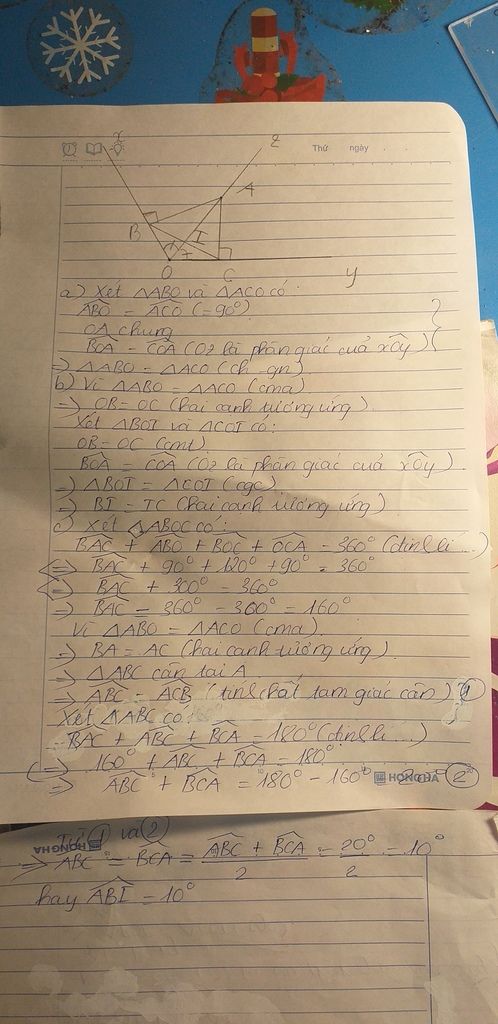 x
z
Thứ ngày
A
B
I
O C y
a) Xét ΔABO và ΔACO có
ABO = ACO (=90°)
OA chung
BOA = COA (Oz là phân giác của xOy)
=> ΔABO = ΔACO (ch-gn)
b) Vì ΔABO = ΔACO (cma)
=> OB = OC (hai cạnh tương ứng)
Xét ΔBOI và ΔCOI có:
OB = OC (cmt)
BOA = COA (Oz là phân giác của xOy)
=> ΔBOI = ΔCOI (cgc)
=> BI = IC (hai cạnh tương ứng)
c) Xét ABOC có:
BAC + ABO + BOC + OCA = 360° (định lí...)
=> BAC + 90° + 120° + 90° = 360°
=> BAC + 300° = 360°
=> BAC = 360° - 300° = 160°
Vì ΔABO = ΔACO (cma)
=> BA = AC (hai cạnh tương ứng)
=> ΔABC cân tại A
=> ABC = ACB (tính chất tam giác cân) 1
Xét ΔABC có
BAC + ABC + BCA = 180° (định lí...)
=> 160° + ABC + BCA = 180°
=> ABC + BCA = 180° - 160° HONG HA 2
Từ 1 và 2
HONG HA
=> ABC = BCA = ABC + BCA / 2 = 20° / 2 = 10°
hay ABI = 10°